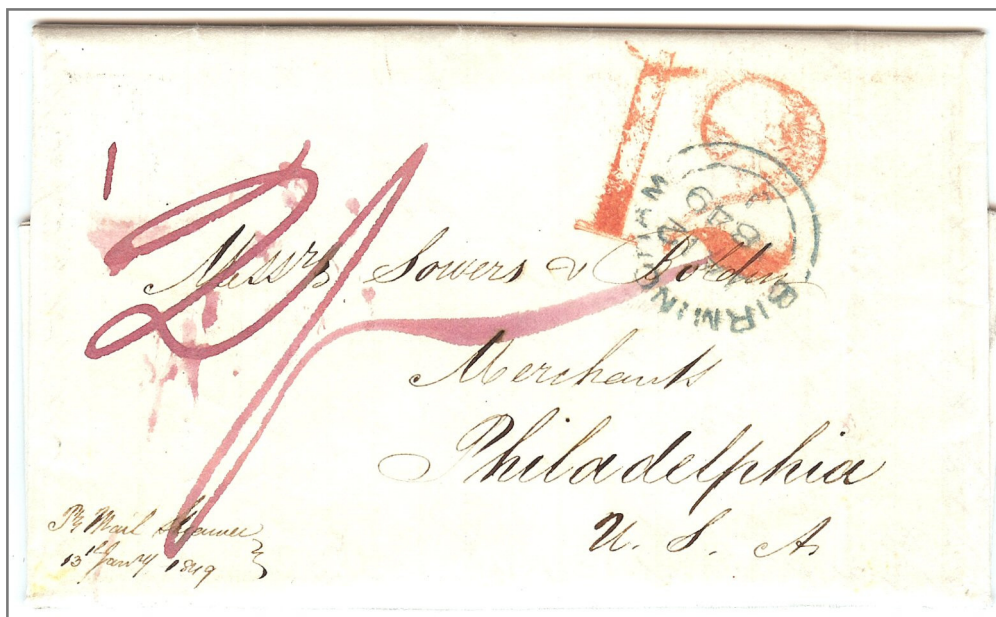 12
1
2/
BIRMINGHAM
Messrs Sowers &
Merchants
Philadelphia
U. S. A.
Pr Mail Steamer
13th Jany 1849